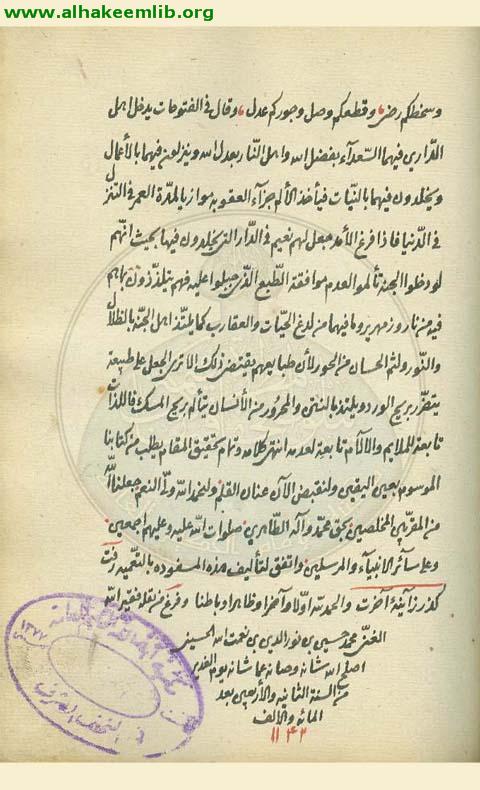 www.alhakeemlib.org
وسخطكم رضى وقطعكم وصل وجوركم عدل وقال فى الفتوحات يدخل اهل
الدارين فيهما السعداء بفضل الله واهل النار بعدل الله وينزلون فيهما بالأعمال
ويخلدون فيهما بالنيات فيأخذ الألم جزاء العقوبه موازيا لمدة العمر فى الشرك
فى الدنيا فاذا فرغ الأمد جعل لهم نعيم فى الدار التى يخلدون فيها بحيث انهم
لو دخلوا الجنة تألموا لعدم موافقة الطبع الذى جبلوا عليه فهم يتلذذون بما هم
فيه من نار وزمهرير وما فيها من لدغ الحيات والعقارب كما يلتذ اهل الجنة بالظلال
والنور ولثم الحسان من الحور لأن طبايعهم يقتضى ذلك الا ترى الجعل على طبيعة
يتضرر بريح الورد ويلتذ بالنتن والمحرور من الأنسان يتألم بريح المسك فاللذات
تابعة للملايم والالام تابعة لعدمه انتهى كلامه وتمام تحقيق المقام يطلب من كتابنا
الموسوم بعين اليقين ولنقبض الآن عنان القلم ولنحمد الله ولى النعم جعلنا الله
من المقربين المخلصين بحق محمد وآله الطاهرين صلوات الله عليه وعليهم اجمعين
وعلى سائر الانبياء والمرسلين واتفق لتأليف هذه المسوده بالتعميد رفت
كدرز آينهٔ آخرت والحمد لله اولا وآخرا وظاهرا وباطنا وفرغ من نقله فقير الله
الغنى محمد حسين بن نور الدين بن نعمت الله الحسينى
اصلح الله شانه وصانه عما شانه يوم الغدير
من السنة الثانية والأربعين بعد
المائه والالف
١١٤٢
مكتبة العامة
١٣٧٧
فى النجف الأشرف